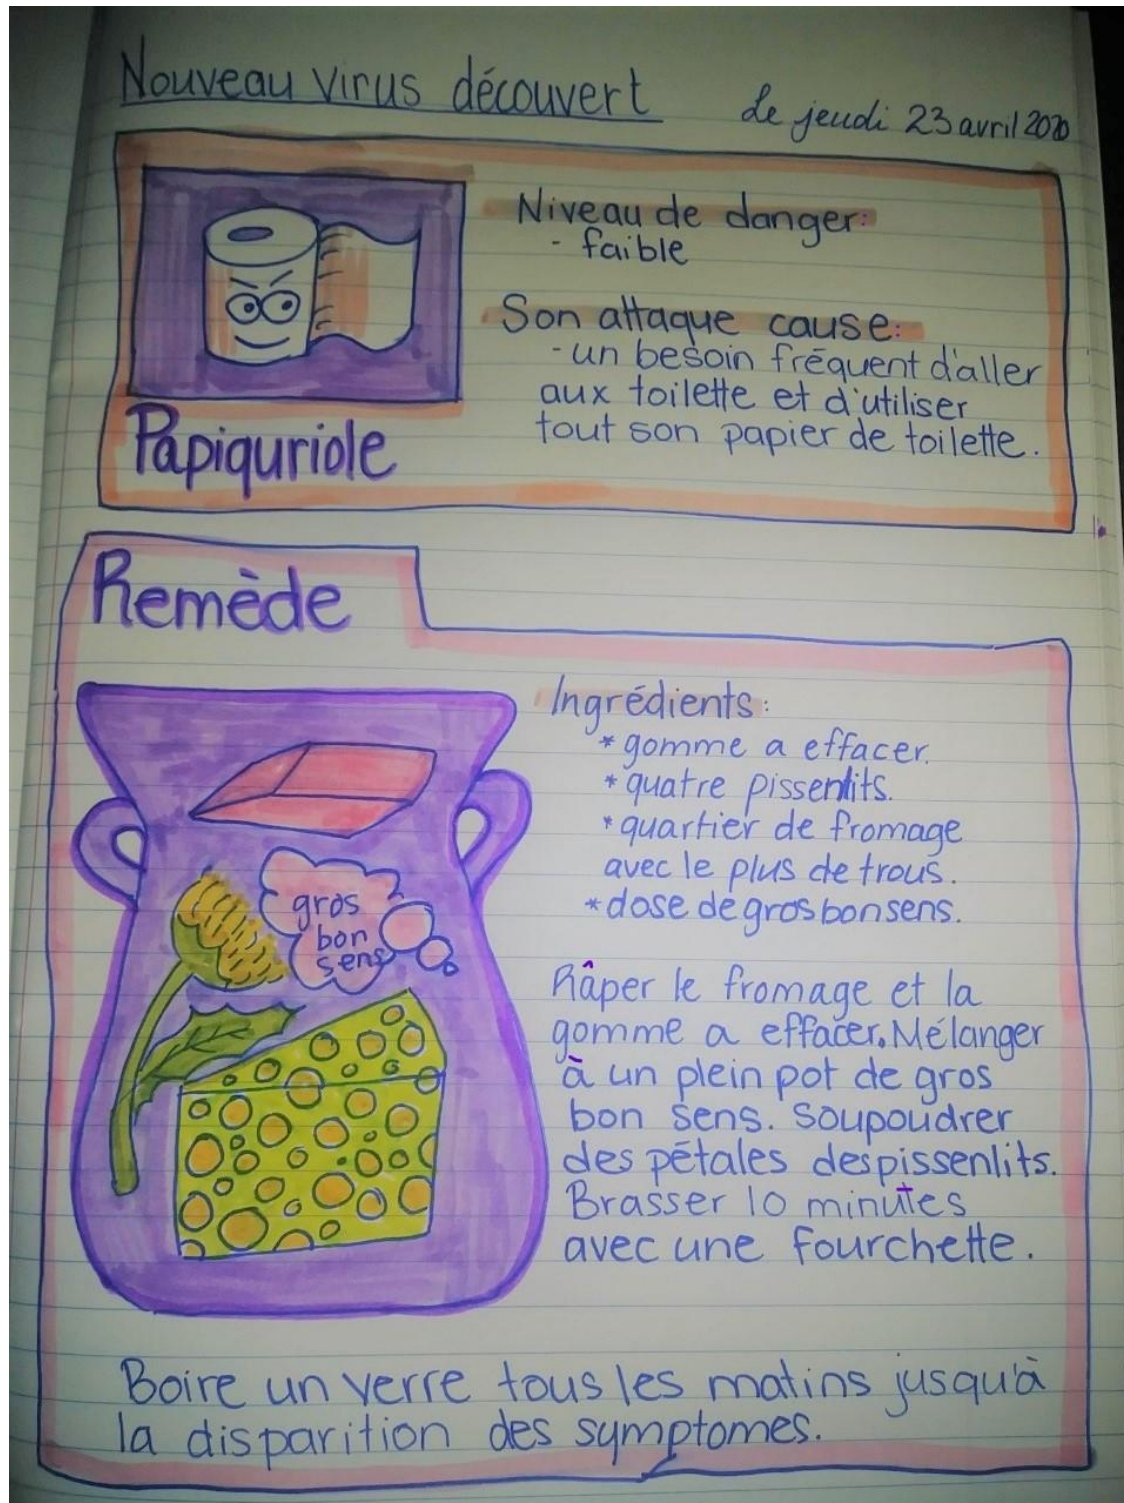 Nouveau virus découvert
Le jeudi 23 avril 2020
Niveau de danger:
- faible
Son attaque cause:
- un besoin fréquent d'aller
aux toilette et d'utiliser
tout son papier de toilette.
Papiquriole
Remède
Ingrédients:
* gomme a effacer.
* quatre pissenlits.
* quartier de fromage
avec le plus de trous.
* dose de gros bon sens.
gros
bon
sens
Râper le fromage et la
gomme a effacer. Mélanger
à un plein pot de gros
bon sens. Soupoudrer
des pétales des pissenlits.
Brasser 10 minutes
avec une fourchette.
Boire un verre tous les matins jusqu'à
la disparition des symptomes.